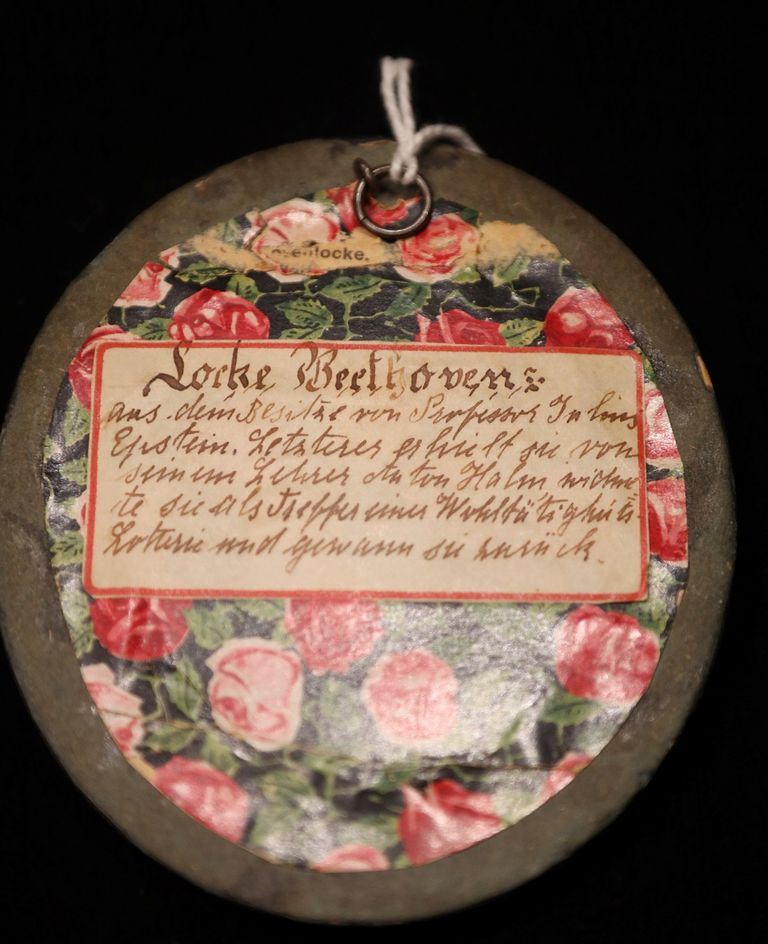 enlocke.
Locke Beethovens
aus dem Besitze von Professor Julius
Epstein. Letzterer erhielt sie von
seinem Lehrer Anton Halm widme
te sie als Treffer einer Wohltätigkeits-
Lotterie und gewann sie zurück.